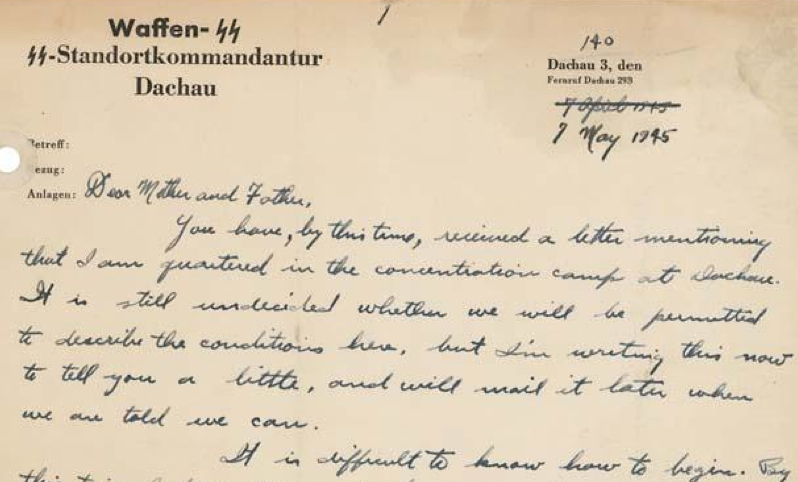 1
Waffen-SS
SS-Standortkommandantur
Dachau
140
Dachau 3, den
Fernruf Dachau 293
7 April 1945
7 May 1945
Betreff:
Bezug:
Anlagen: Dear Mother and Father,
You have, by this time, received a letter mentioning
that I am quartered in the concentration camp at Dachau.
It is still undecided whether we will be permitted
to describe the conditions here, but I'm writing this now
to tell you a little, and will mail it later when
we are told we can.
It is difficult to know how to begin. By